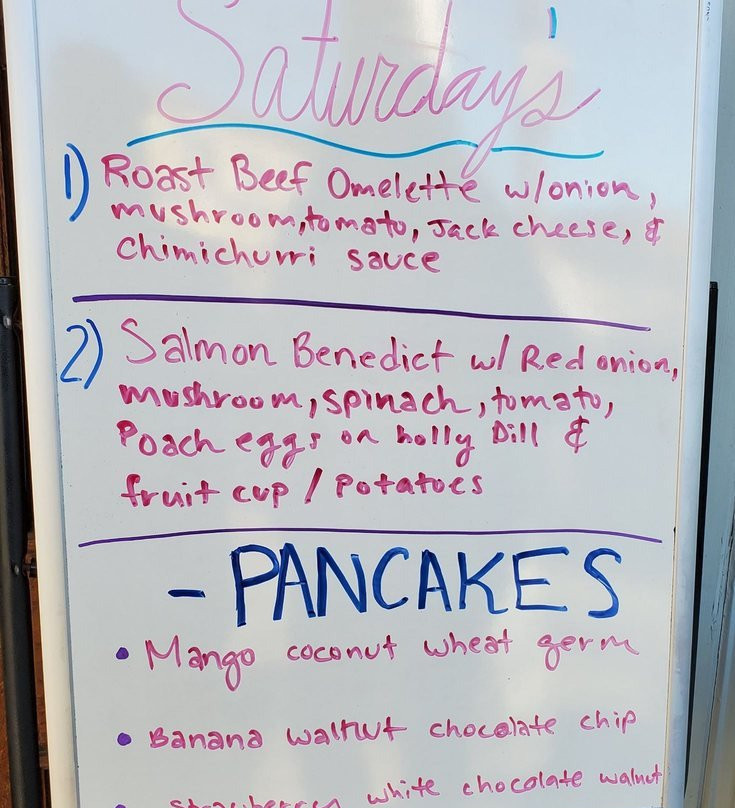 Saturday's
1) Roast Beef Omelette w/onion,
mushroom, tomato, Jack cheese, &
chimichurri sauce
2) Salmon Benedict w/ Red onion,
mushroom, spinach, tomato,
Poach eggs on holly Dill &
fruit cup / Potatoes
- PANCAKES
• Mango coconut wheat germ
• Banana walnut chocolate chip
• Strawberry white chocolate walnut